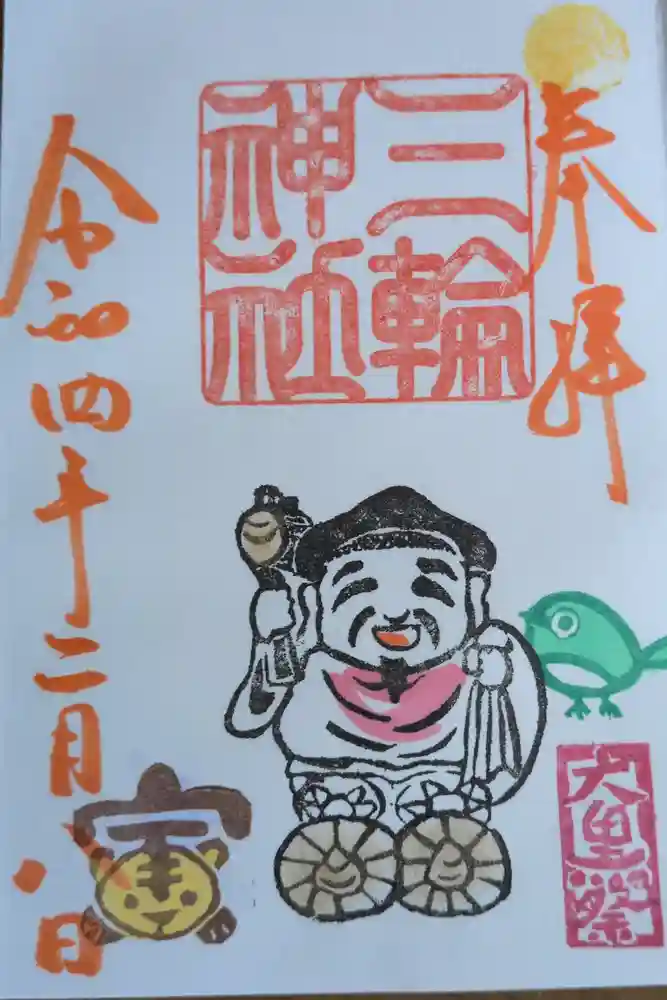 奉拝
三輪
神社
大黒祭
令和四年二月八日
寅